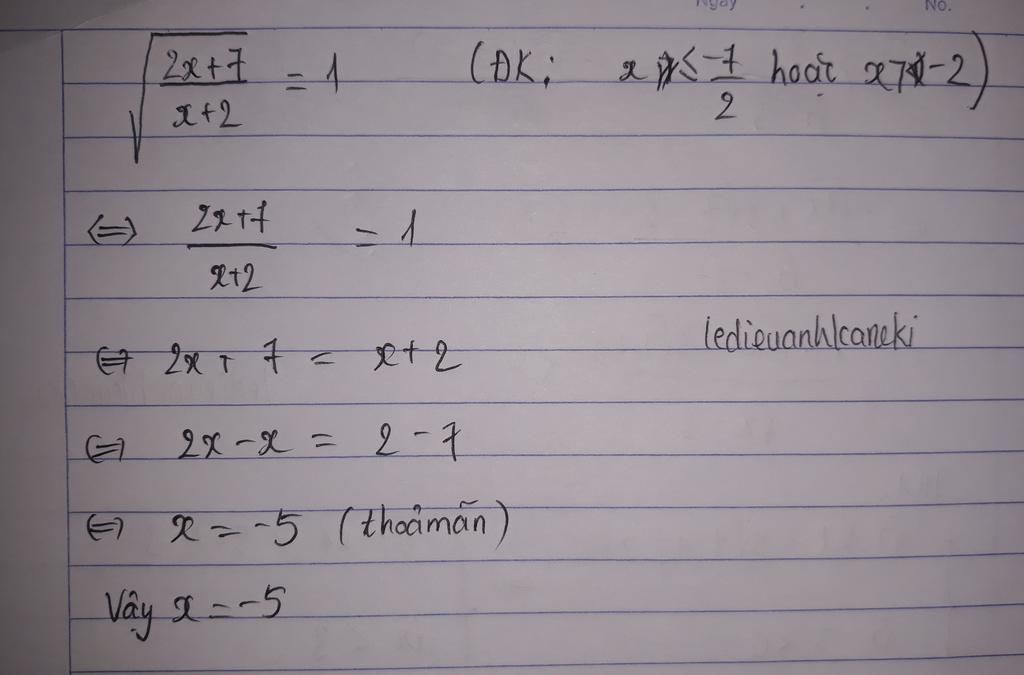 Ngày No.
√((2x+7)/(x+2)) = 1 (ĐK: x ≤ -7/2 hoặc x > -2)
⇔ (2x+7)/(x+2) = 1
⇔ 2x + 7 = x + 2
ledieuanhkaneki
⇔ 2x - x = 2 - 7
⇔ x = -5 (thoả mãn)
Vậy x = -5